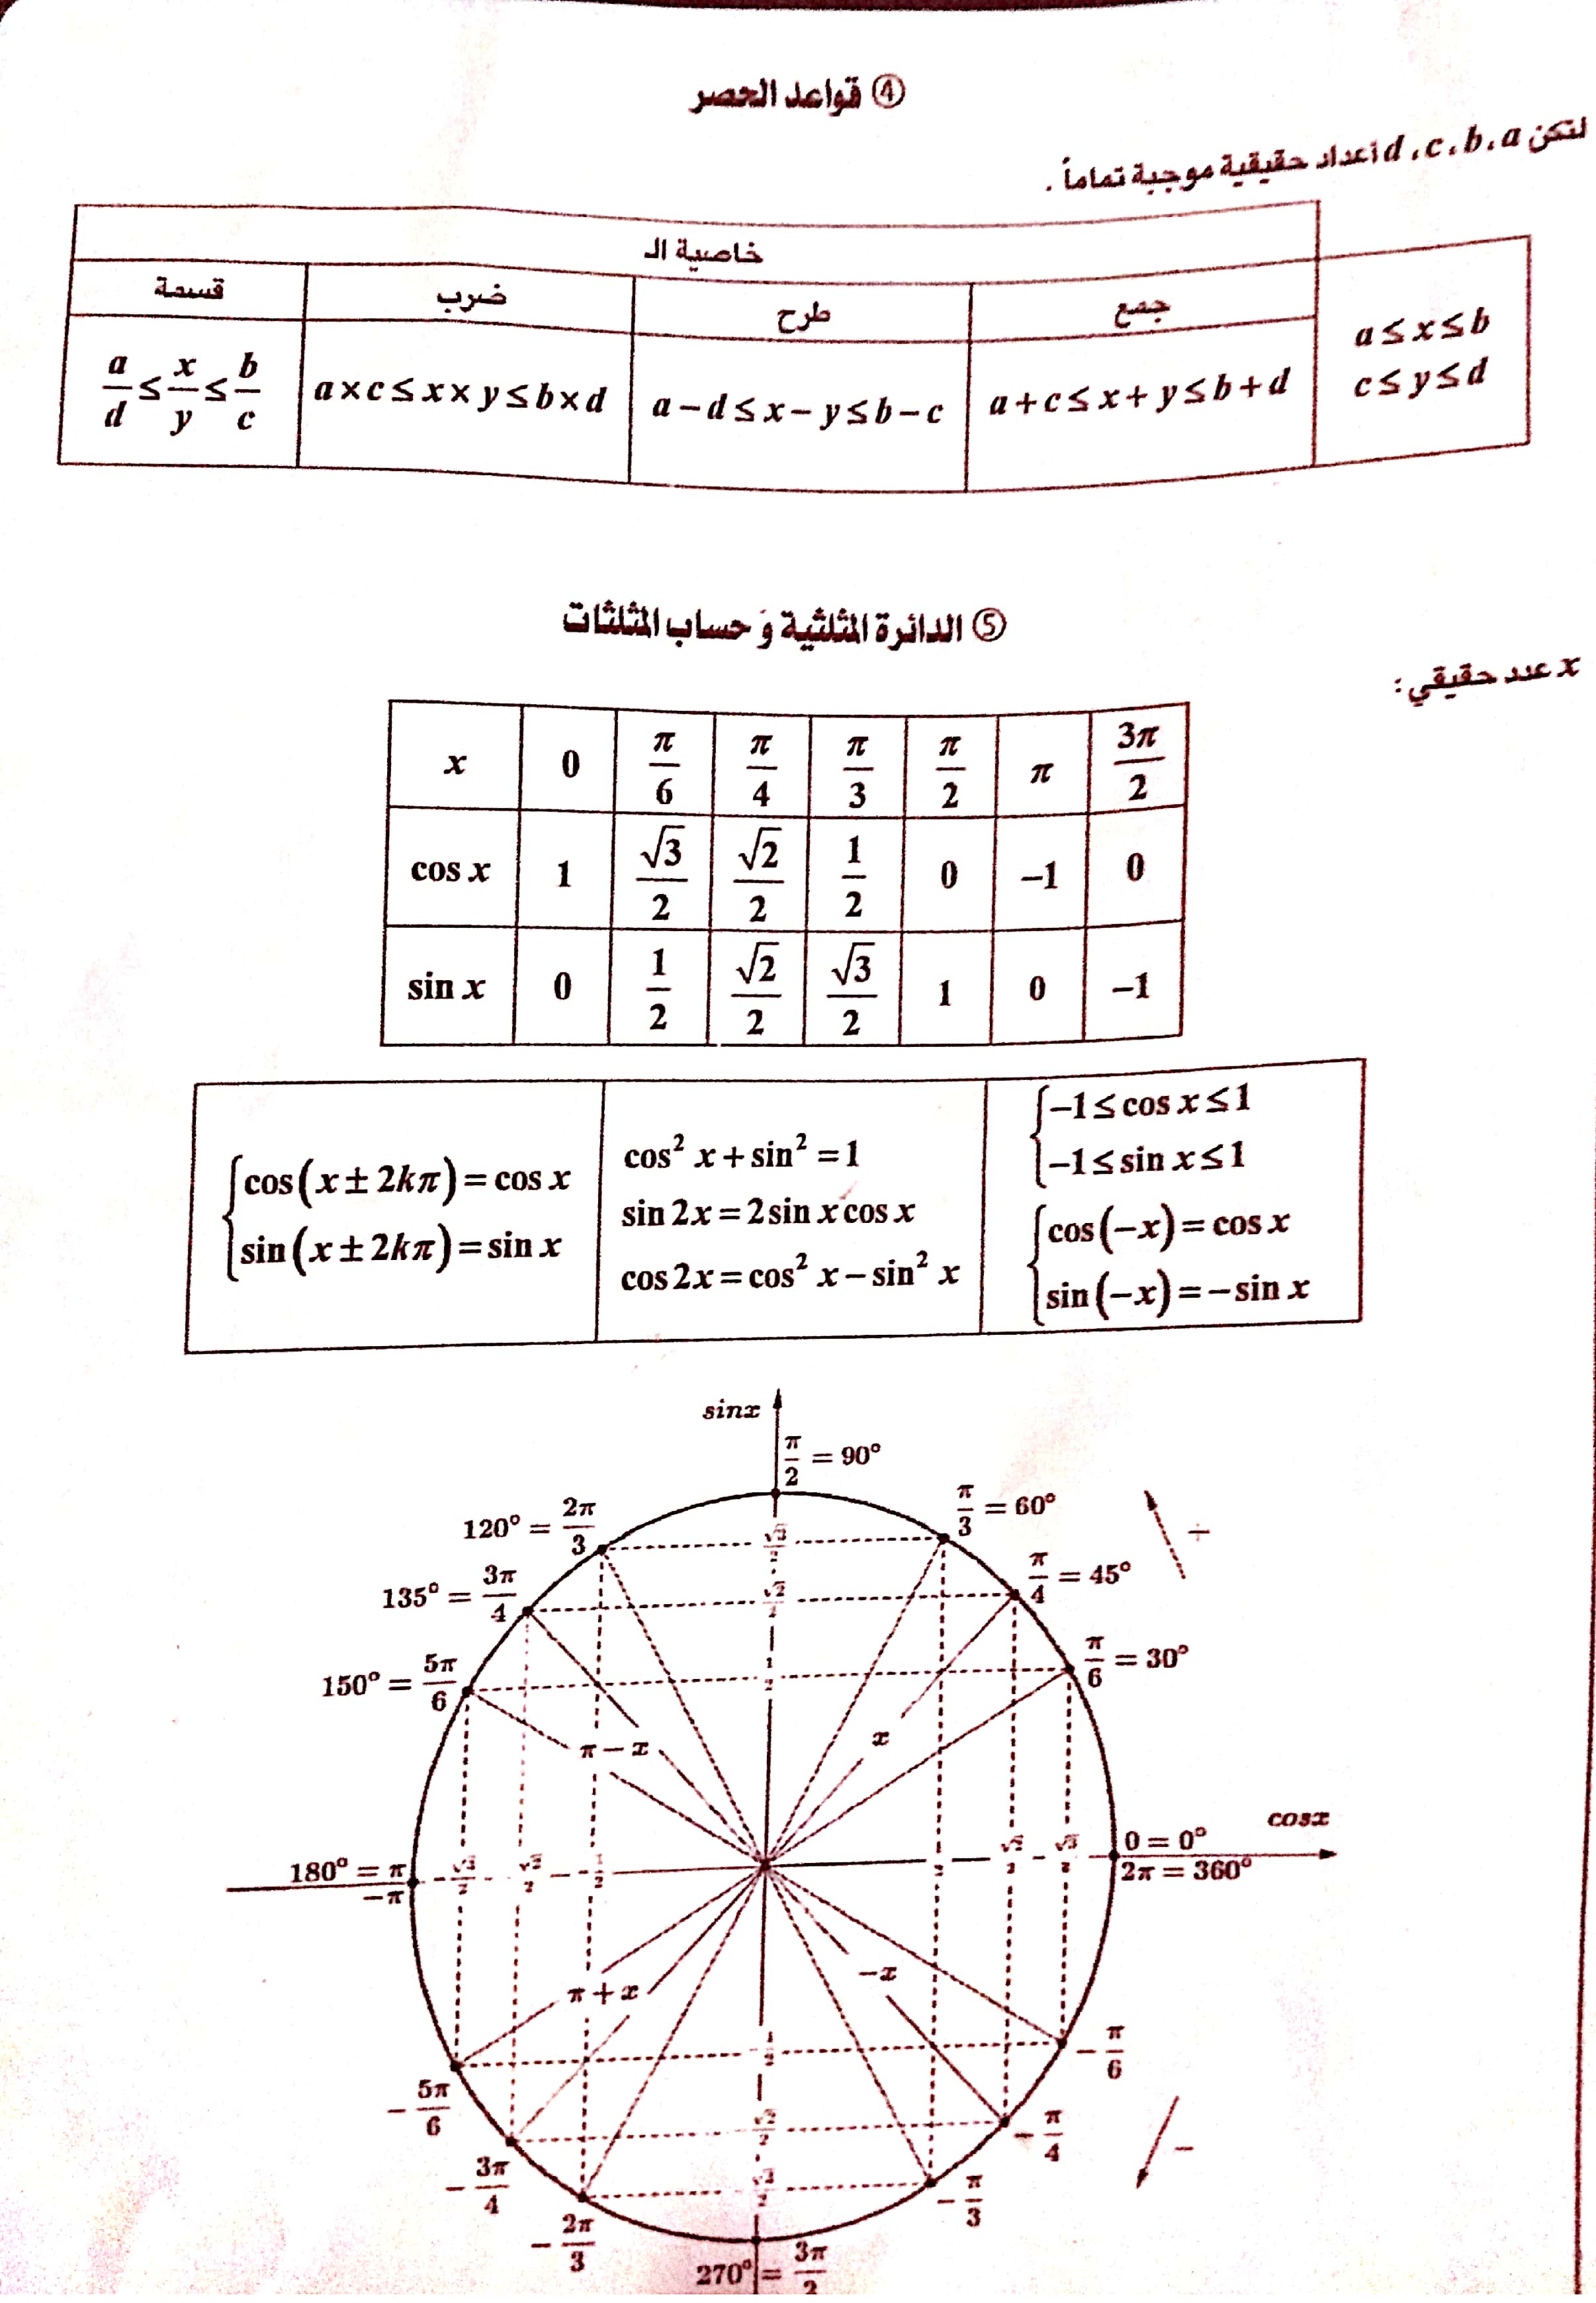 ④ قواعد الحصر
لتكن d ، c ، b ، a أعداد حقيقية موجبة تماماً .
خاصية الـ
جمع
طرح
ضرب
قسمة
a ≤ x ≤ b
c ≤ y ≤ d
a + c ≤ x + y ≤ b + d
a − d ≤ x − y ≤ b − c
a × c ≤ x × y ≤ b × d
a/d ≤ x/y ≤ b/c
⑤ الدائرة المثلثية وَ حساب المثلثات
x عدد حقيقي :
x 0 π/6 π/4 π/3 π/2 π 3π/2
cos x 1 √3/2 √2/2 1/2 0 −1 0
sin x 0 1/2 √2/2 √3/2 1 0 −1
−1 ≤ cos x ≤ 1
−1 ≤ sin x ≤ 1
cos(−x) = cos x
sin(−x) = − sin x
cos² x + sin² = 1
sin 2x = 2 sin x cos x
cos 2x = cos² x − sin² x
cos(x ± 2kπ) = cos x
sin(x ± 2kπ) = sin x
sinx
π/2 = 90°
120° = 2π/3
π/3 = 60°
+
135° = 3π/4
π/4 = 45°
150° = 5π/6
π/6 = 30°
√3/2
√2/2
1/2
π − x
x
cosx
180° = π
−π
−√3/2 −√2/2 −1/2
1/2 √2/2 √3/2
0 = 0°
2π = 360°
π + x
−x
−1/2
−√2/2
−√3/2
−5π/6
−π/6
−3π/4
−π/4
−
−2π/3
−π/3
270° = 3π/2